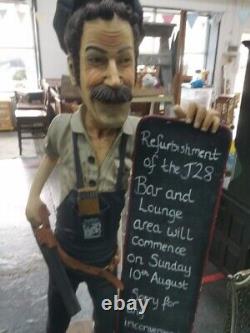 Refurbishment
of the J28
Bar and
Lounge
area will
commence
on Sunday
10th August
Sorry for
any
inconvenience